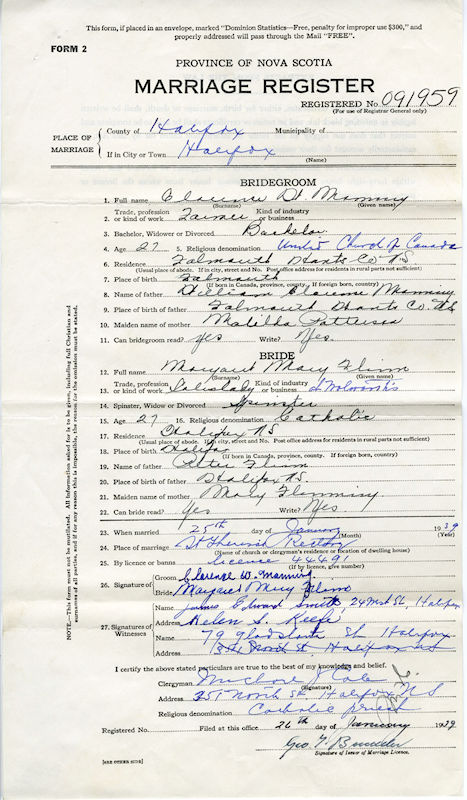 This form, if placed in an envelope, marked "Dominion Statistics—Free, penalty for improper use $300," and
properly addressed will pass through the Mail "FREE".
FORM 2
PROVINCE OF NOVA SCOTIA
MARRIAGE REGISTER
REGISTERED No. 091959
(For use of Registrar General only)
PLACE OF MARRIAGE
County of Halifax Municipality of
If in City or Town Halifax
(Name)
BRIDEGROOM
1. Full name Clarence W. Manning
(Surname) (Given name)
2. Trade, profession or kind of work Farmer Kind of industry or business
3. Bachelor, Widower or Divorced Bachelor
4. Age 27 5. Religious denomination United Church of Canada
6. Residence Falmouth Hants Co NS
(Usual place of abode. If in city, street and No. Post office address for residents in rural parts not sufficient)
7. Place of birth Falmouth
(If born in Canada, province, county. If foreign born, country)
8. Name of father William Clarence Manning
9. Place of birth of father Falmouth Hants Co. NS
10. Maiden name of mother Matilda Patterson
11. Can bridegroom read? yes Write? yes.
BRIDE
12. Full name Margaret Mary Flinn
(Surname) (Given name)
13. Trade, profession or kind of work Saleslady Kind of industry or business Woolworth's
14. Spinster, Widow or Divorced Spinster
15. Age 27 16. Religious denomination Catholic
17. Residence Halifax NS
(Usual place of abode. If in city, street and No. Post office address for residents in rural parts not sufficient)
18. Place of birth Halifax
(If born in Canada, province, county. If foreign born, country)
19. Name of father Peter Flinn
20. Place of birth of father Halifax NS.
21. Maiden name of mother Mary Flemming
22. Can bride read? Yes Write? Yes
23. When married 25th day of January 1939
(Month) (Year)
24. Place of marriage St Theresa's Rectory
(Name of church or clergyman's residence or location of dwelling house)
25. By licence or banns Licence 44491
(If by licence, give number)
26. Signature of Groom Clarence W. Manning
Bride Margaret Mary Flinn
27. Signatures of Witnesses
Name James Edward Smith, 24 West St, Halifax
Address Helen S. Keefe
Name 79 Gladstone St Halifax
Address North St Halifax NS
I certify the above stated particulars are true to the best of my knowledge and belief.
Clergyman
(Signature)
Address 351 North St Halifax N S
Religious denomination Catholic priest
Registered No. Filed at this office 26th day of January 1939
Geo.
Signature of Issuer of Marriage Licence.
[SEE OTHER SIDE]
NOTE.—This form must not be mutilated. All information asked for is to be given, including full Christian and
surnames of all parties, and if for any reason this is impossible, the reason for the omission must be stated.